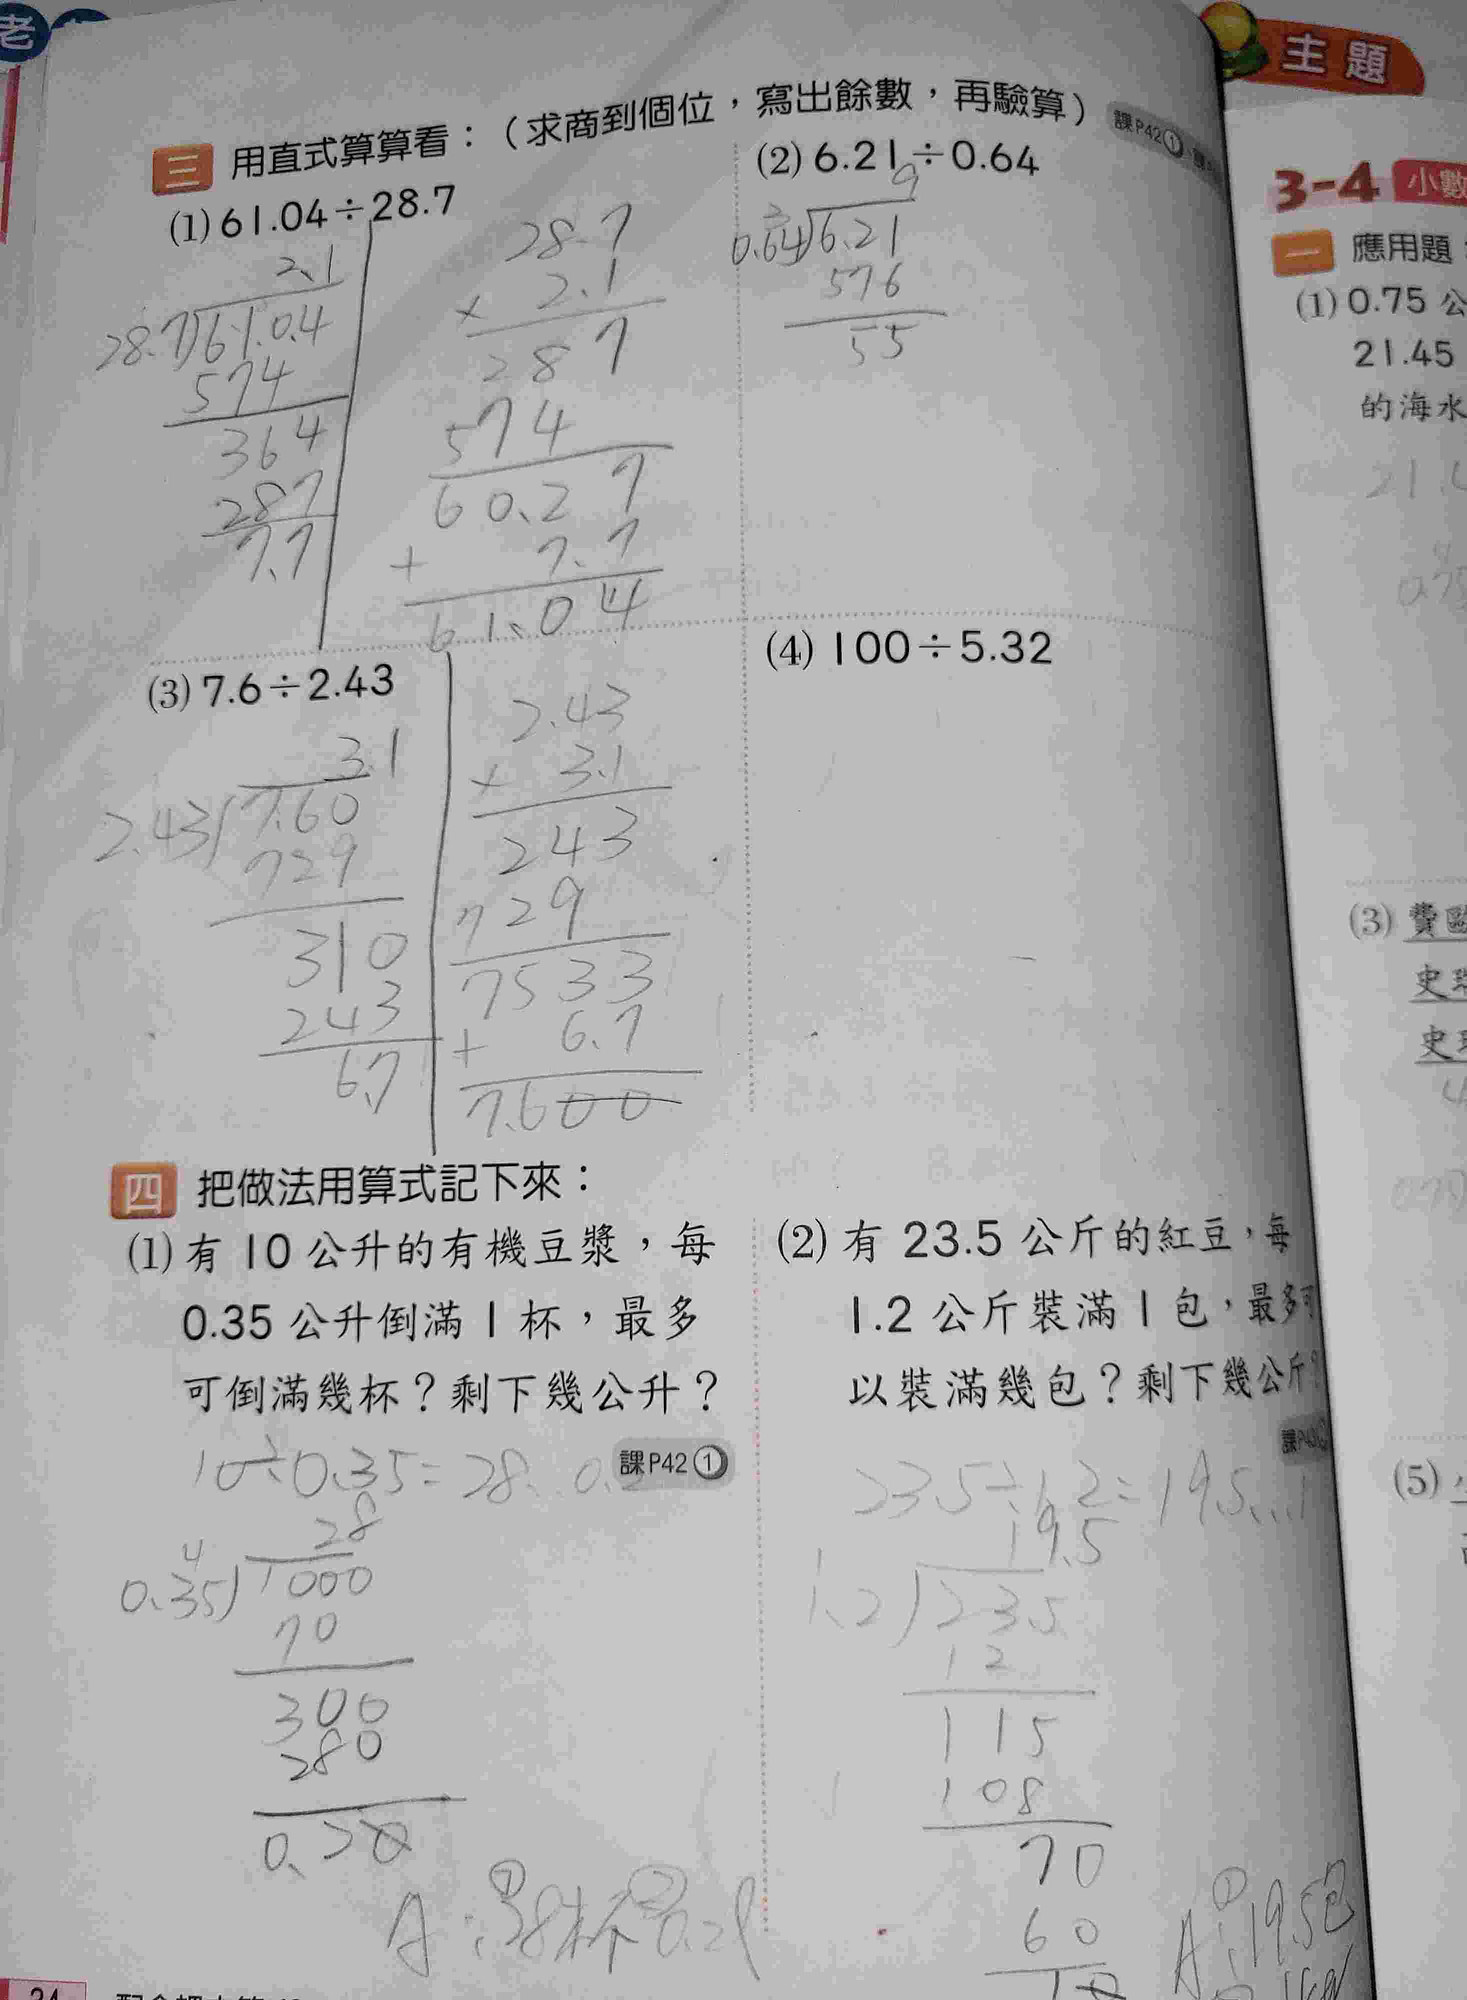 老
三 用直式算算看：（求商到個位，寫出餘數，再驗算） 課P42①
(1) 61.04÷28.7
2.1
28.7 61.0.4
574
364
287
7.7
28.7
× 2.1
287
574
60.27
+ 7.7
61.04
(2) 6.21÷0.64
9
0.64 6.21
576
55
(3) 7.6÷2.43
3.1
2.43 7.60
729
310
243
6.7
2.43
× 3.1
243
729
7533
+ 6.7
7.600
(4) 100÷5.32
四 把做法用算式記下來：
(1) 有 10 公升的有機豆漿，每
0.35 公升倒滿 1 杯，最多
可倒滿幾杯？剩下幾公升？
課P42①
10÷0.35=28
28
0.35 1000
70
300
280
0.20
A：①28杯②0.2l
(2) 有 23.5 公斤的紅豆，每
1.2 公斤裝滿 1 包，最多可
以裝滿幾包？剩下幾公斤？
23.5÷1.2=19.5...1
19.5
1.2 23.5
12
115
108
70
60
10
A：①19.5包
主題
3-4 小數
一 應用題
(1) 0.75 公
21.45
的海水
(3) 費歐
史瑞
史瑞
(5)